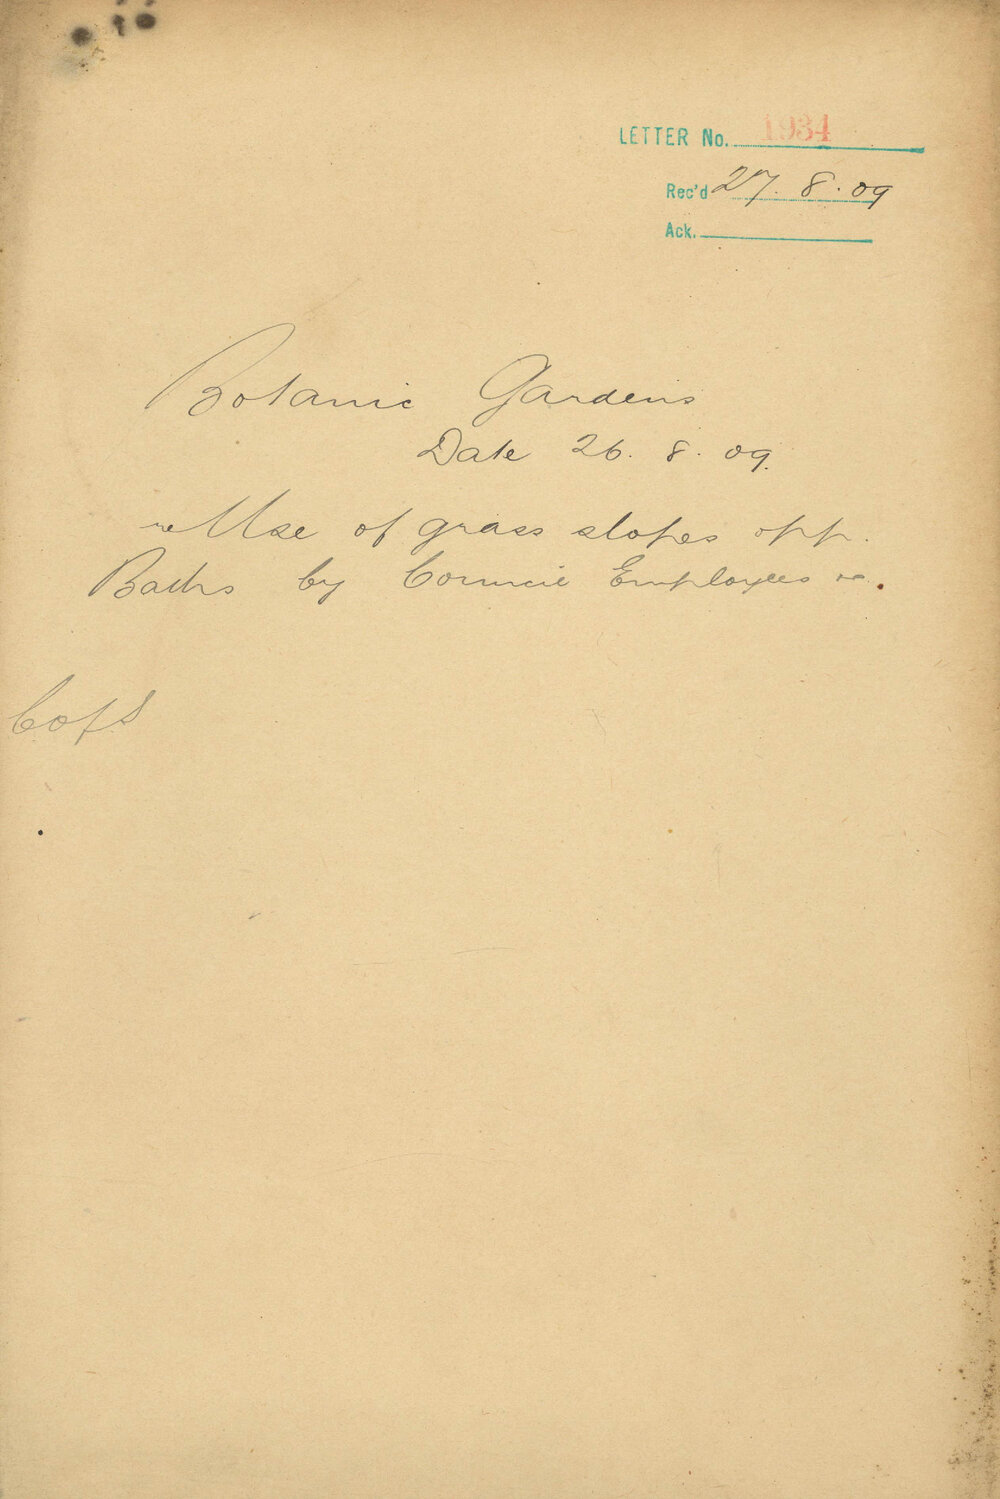 LETTER No. 1934
Rec'd 27. 8. 09
Ack.
Botanic Gardens
Date 26. 8. 09.
re Use of grass slopes opp.
Baths by Council Employees
C of S